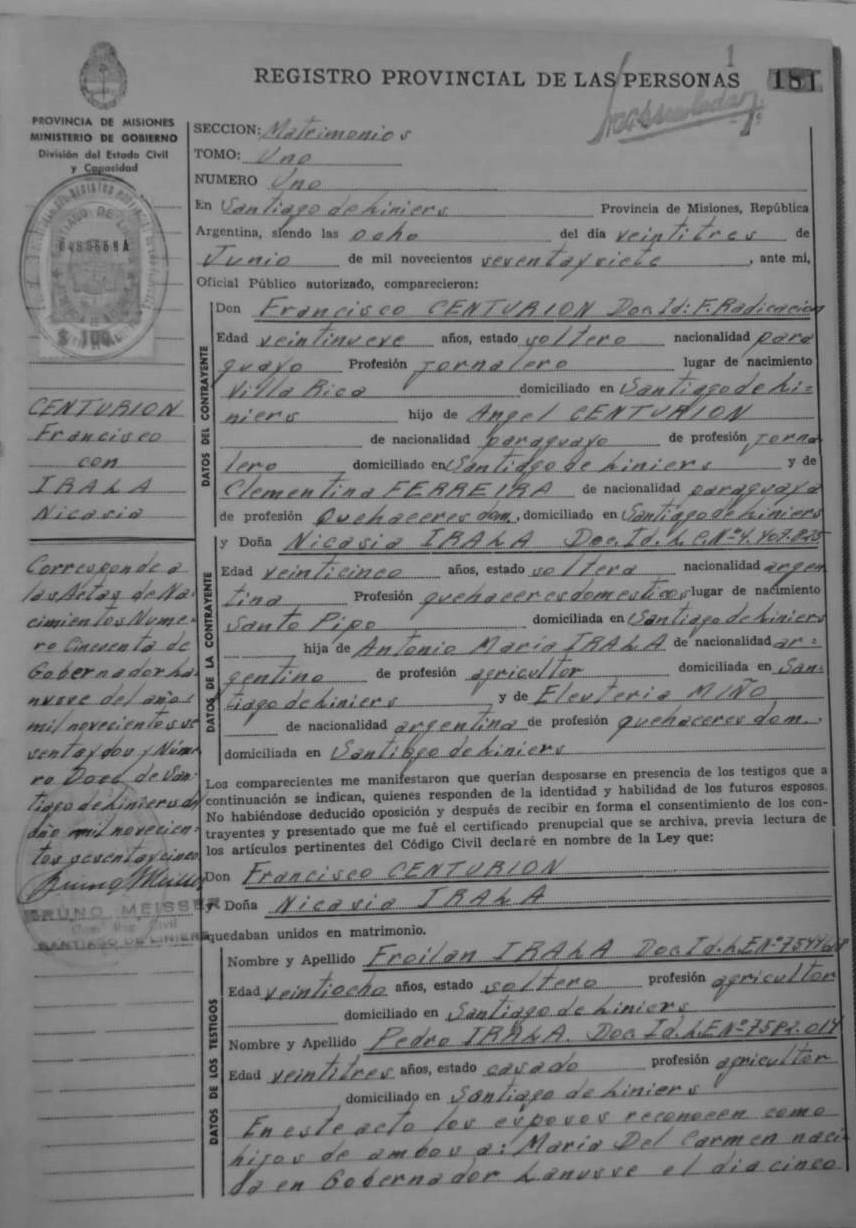 1
REGISTRO PROVINCIAL DE LAS PERSONAS 181
PROVINCIA DE MISIONES
MINISTERIO DE GOBIERNO
División del Estado Civil
y Capacidad
$ 100
CENTURION
Francisco
con
IRALA
Nicasia
Corresponde a
las Actas de Na-
cimientos Nume-
ro Cincuenta de
Gobernador La-
nusse del año
mil novecientos se
senta y dos y Núme
ro Doce de San-
tiago de Liniers
año mil novecien-
tos sesenta y cinco
BRUNO MEISSER
SANTIAGO DE LINIERS
SECCION: Matrimonios
TOMO: Uno
NUMERO Uno
En Santiago de Liniers Provincia de Misiones, República
Argentina, siendo las ocho del día veintitres de
Junio de mil novecientos seventa y siete, ante mi,
Oficial Público autorizado, comparecieron:
DATOS DEL CONTRAYENTE
Don Francisco CENTURION Doc. Id: F. Radicación
Edad veintinueve años, estado soltero nacionalidad para
guayo Profesión jornalero lugar de nacimiento
Villa Rica domiciliado en Santiago de Li=
niers hijo de Angel CENTURION
de nacionalidad paraguayo de profesión jorna
lero domiciliado en Santiago de Liniers y de
Clementina FERREIRA de nacionalidad paraguaya
de profesión Quehaceres dom., domiciliado en Santiago de Liniers
DATOS DE LA CONTRAYENTE
y Doña Nicasia IRALA Doc. Id. L.C. Nº 4.407.825
Edad veinticinco años, estado soltera nacionalidad argen
tina Profesión quehaceres domesticos lugar de nacimiento
Santo Pipo domiciliada en Santiago de Liniers
hija de Antonio María IRALA de nacionalidad ar=
gentino de profesión agricultor domiciliada en San=
tiago de Liniers y de Eleuteria MIÑO
de nacionalidad argentina de profesión quehaceres dom.,
domiciliada en Santiago de Liniers
Los comparecientes me manifestaron que querían desposarse en presencia de los testigos que a
continuación se indican, quienes responden de la identidad y habilidad de los futuros esposos.
No habiéndose deducido oposición y después de recibir en forma el consentimiento de los con-
trayentes y presentado que me fué el certificado prenupcial que se archiva, previa lectura de
los artículos pertinentes del Código Civil declaré en nombre de la Ley que:
Don Francisco CENTURION
y Doña Nicasia IRALA
quedaban unidos en matrimonio.
DATOS DE LOS TESTIGOS
Nombre y Apellido Froilan IRALA Doc. Id. L.E. Nº
Edad veintiocho años, estado soltero profesión agricultor
domiciliado en Santiago de Liniers
Nombre y Apellido Pedro IRALA. Doc Id. L.E Nº
Edad veintitres años, estado casado profesión agricultor
domiciliado en Santiago de Liniers
En este acto los esposos reconocen como
hijos de ambos a: Maria Del Carmen naci-
da en Gobernador Lanusse el dia cinco